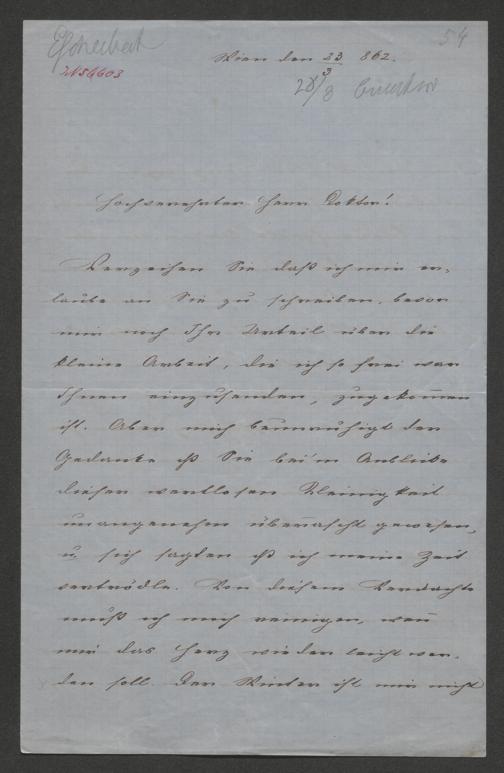 54
N 56603
Wien den 23/3 862.
28/3
Hochverehrter Herr Doktor!
Verzeihen Sie daß ich mir er-
laube an Sie zu schreiben, bevor
mir noch Ihr Urteil über die
kleine Arbeit, die ich so frei war
Ihnen einzusenden, zugekom̅en
ist. Aber mich beunruhigt der
Gedanke Sie bei'm Anblicke
dieser wertlosen Kleinigkeit
unangenehm überrascht gewesen,
u. sich sagten ich meine Zeit
vertrödle. Von diesem Verdachte
muß ich mich reinigen, wen̅
mir das Herz wieder leicht wer-
den soll. Der Winter ist mir nicht